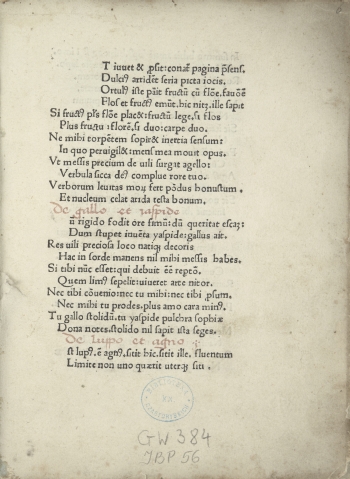 T iuuet & ꝓsit: conat̄ pagina p̄sens.
Dulciꝰ arridēt seria picta iocis.
Ortulꝰ iste parit fructū cū flōe. fauorē
Flos et fructꝰ emūt. hic nitꝫ. ille sapit
Si fructꝰ plꝰ flōe placꝫ: fructū lege. si flos
Plus fructu: florē. si duo: carpe duo.
Ne mihi torpētem sopirꝫ inertia sensum:
In quo peruigilꝫ: mens mea mouit opus.
Ut messis precium de uili surgat agello:
Verbula sicca deꝰ complue rore tuo.
Verborum leuitas moꝝ fert pōdus honustum.
Et nucleum celat arida testa bonum.
De gallo et iaspide
ū rigido fodit ore fimū: dū queritat escaꝫ:
Dum stupet inuēta yaspide: gallus ait.
Res uili preciosa loco natiqꝫ decoris
Hac in sorde manens nil mihi messis habes.
Si tibi nūc esset: qui debuit eē reptō.
Quem limꝰ sepelit: uiueret arte nitor.
Nec tibi cōuenio: nec tu mihi: nec tibi ꝓsum.
Nec mihi tu prodes. plus amo cara minꝰ.
Tu gallo stolidū. tu yaspide pulchra sophie
Dona notes. stolido nil sapit ista seges.
De lupo et agno
st lupꝰ. ē agnꝰ. sitit hic. sitit ille. fluentum
Limite non uno quaerit uterqꝫ siti.
GW 384
JBP 56